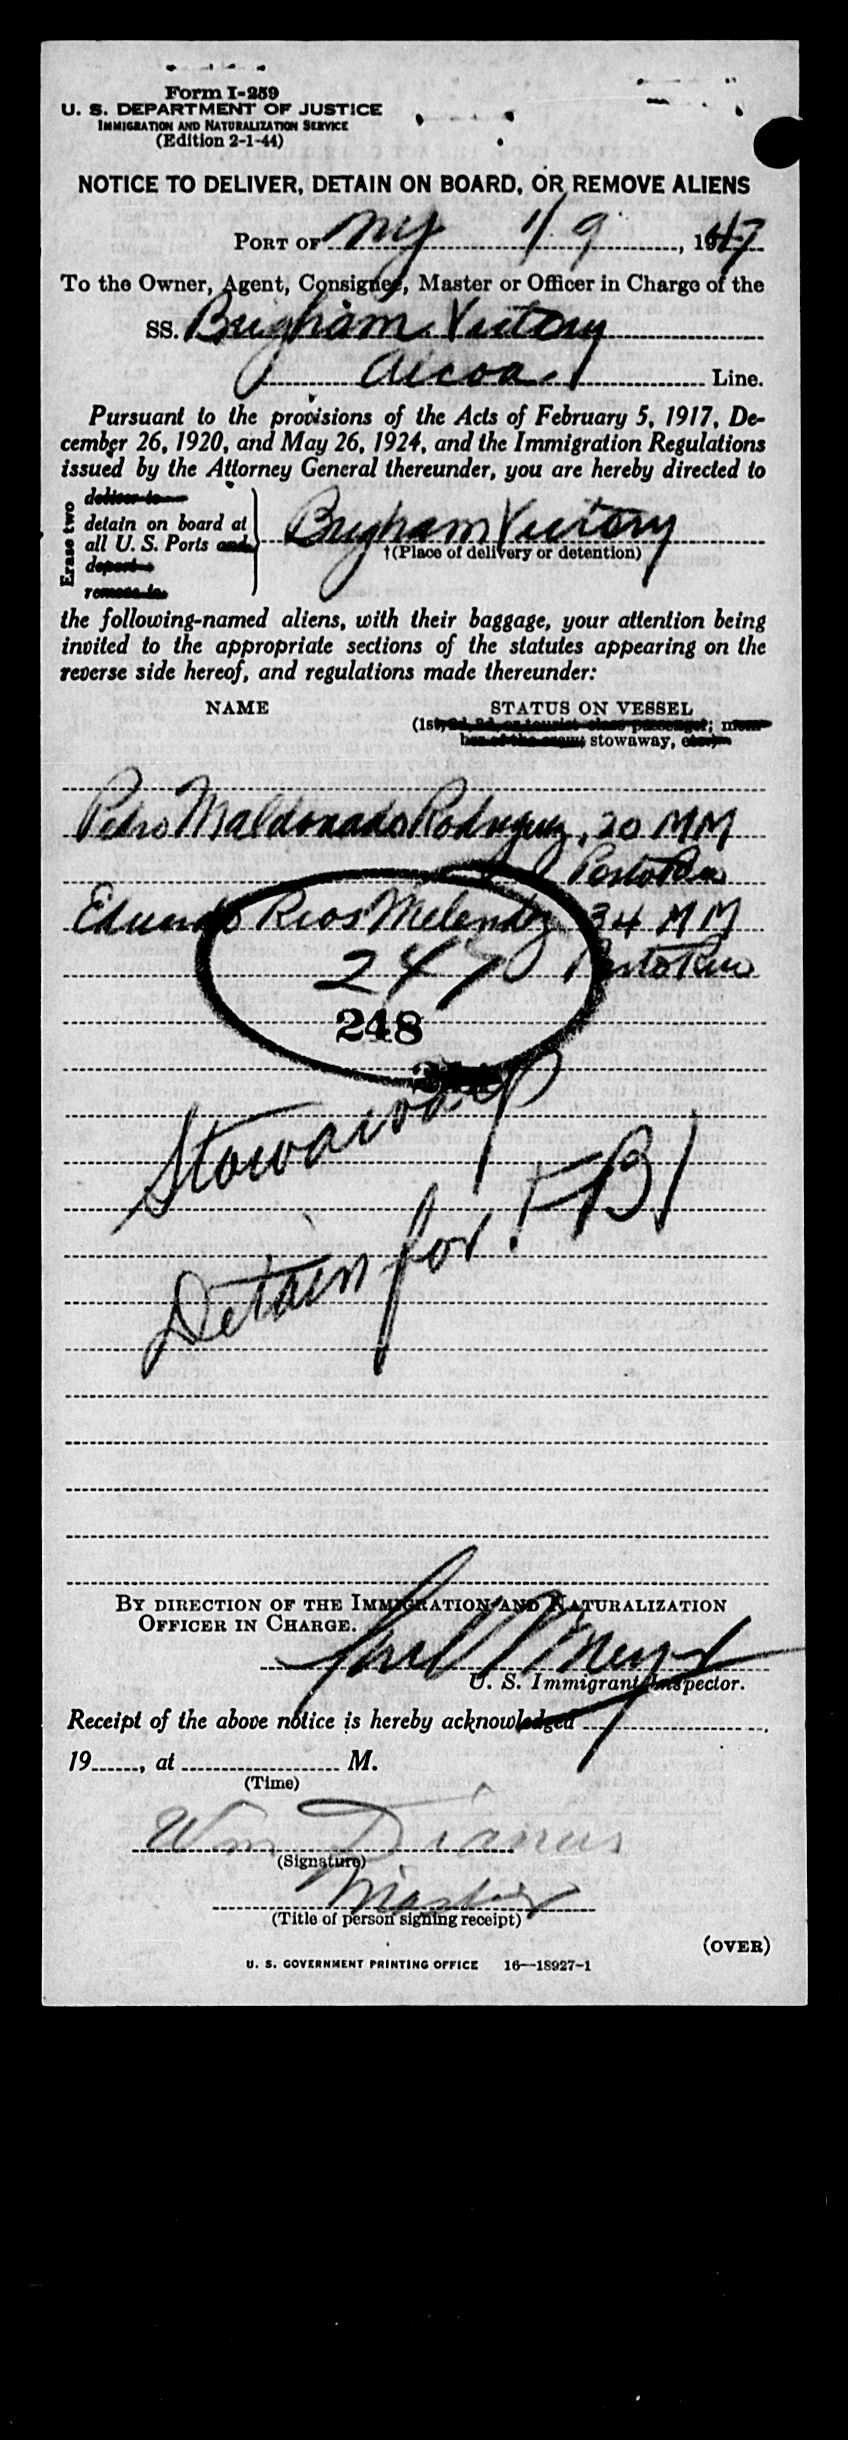 Form I-259
U. S. DEPARTMENT OF JUSTICE
IMMIGRATION AND NATURALIZATION SERVICE
(Edition 2-1-44)
NOTICE TO DELIVER, DETAIN ON BOARD, OR REMOVE ALIENS
PORT OF NY 1/9, 1947
To the Owner, Agent, Consignee, Master or Officer in Charge of the
SS. Brigham Victory
Alcoa Line.
Pursuant to the provisions of the Acts of February 5, 1917, De-
cember 26, 1920, and May 26, 1924, and the Immigration Regulations
issued by the Attorney General thereunder, you are hereby directed to
Erase two
deliver to
detain on board at
all U. S. Ports and
depart
remove to
Brigham Victory
†(Place of delivery or detention)
the following-named aliens, with their baggage, your attention being
invited to the appropriate sections of the statutes appearing on the
reverse side hereof, and regulations made thereunder:
NAME STATUS ON VESSEL
(1st, 2d, 3d, or tourist class passenger; mem-
ber of the crew, stowaway, etc.)
Pedro Maldonado Rodriguez, 20 MM
Porto Rico
Eduardo Rios Melendez 34 MM
Porto Rico
247
248
Stowaway
Detain for FBI
BY DIRECTION OF THE IMMIGRATION AND NATURALIZATION
OFFICER IN CHARGE.
U. S. Immigrant Inspector.
Receipt of the above notice is hereby acknowledged
19, at M.
(Time)
Wm
(Signature)
Master
(Title of person signing receipt)
(OVER)
U. S. GOVERNMENT PRINTING OFFICE 16—18927-1